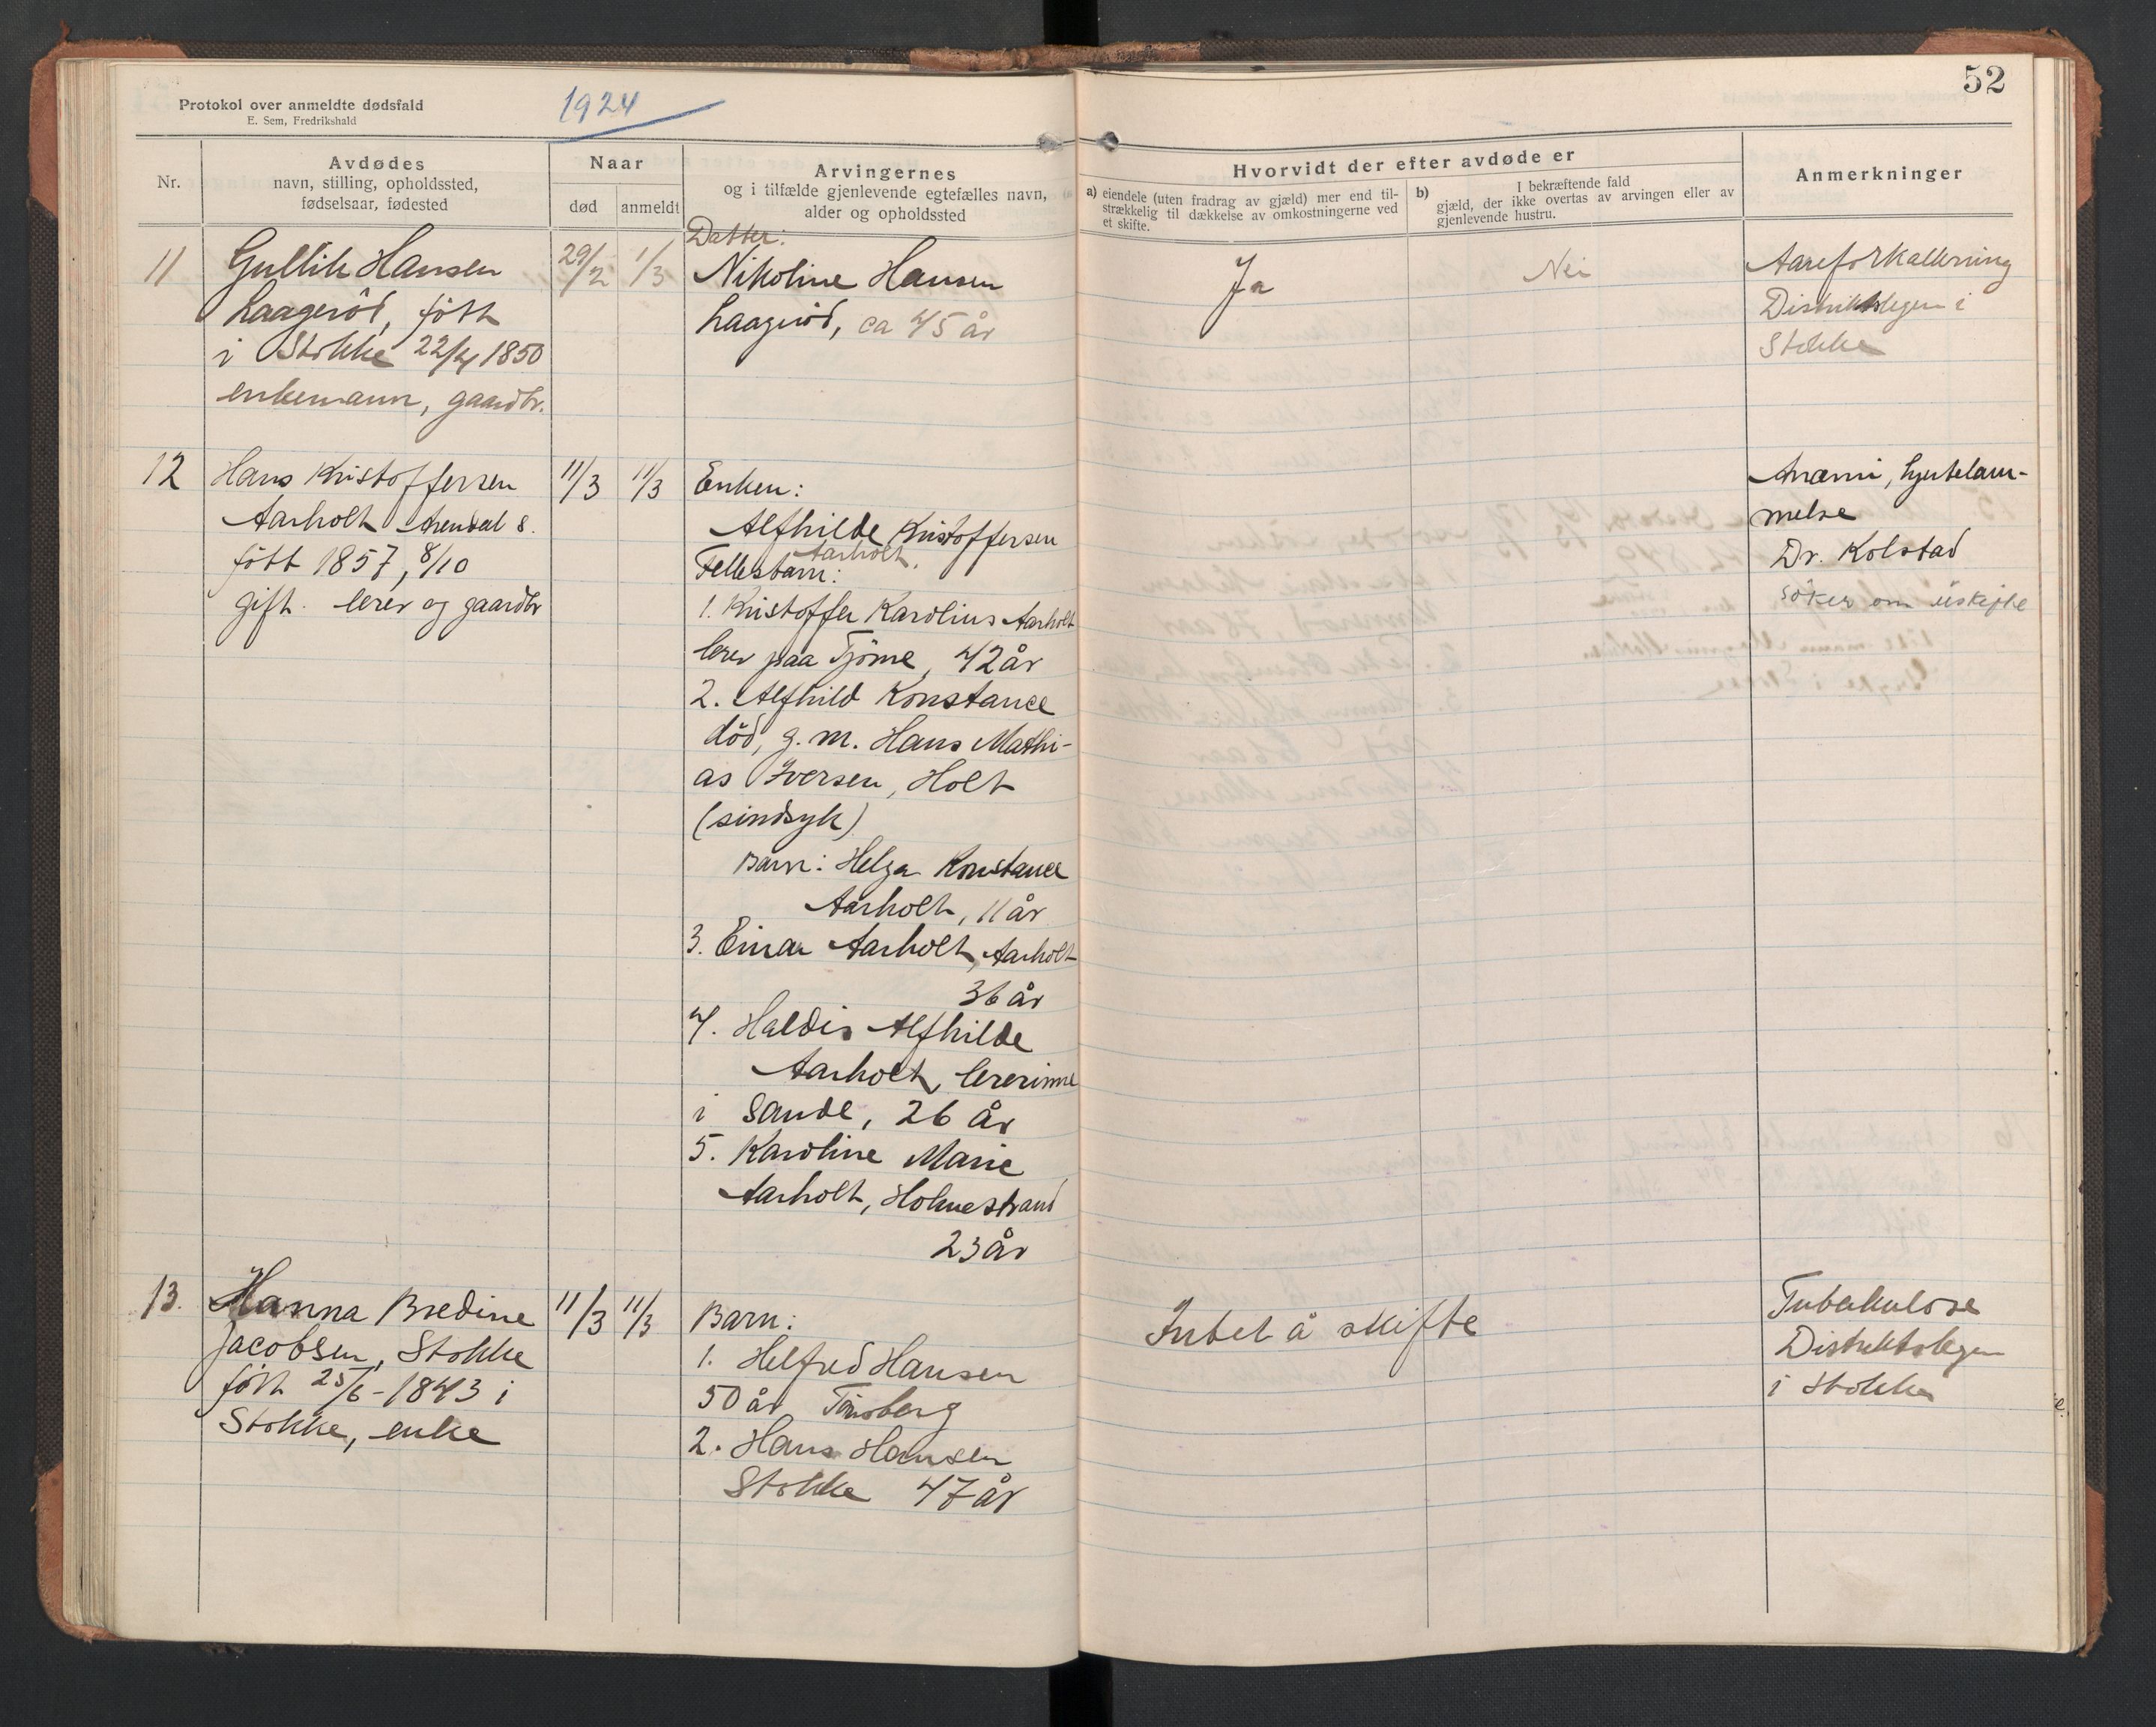 52
Protokol over anmeldte dødsfald
E. Sem, Fredrikshald
1924
Nr.
Avdødes
navn, stilling, opholdssted,
fødselsaar, fødested
Naar
død
anmeldt
Arvingernes
og i tilfælde gjenlevende egtefælles navn,
alder og opholdssted
Hvorvidt der efter avdøde er
a) eiendele (uten fradrag av gjæld) mer end til-
strækkelig til dækkelse av omkostningerne ved
et skifte.
b) I bekræftende fald
gjæld, der ikke overtas av arvingen eller av
gjenlevende hustru.
Anmerkninger
11
Gullik Hansen
Laagerød, født
i Stokke 22/4 1850
enkemann, gaardbr.
29/2
1/3
Datter:
Nikoline Hansen
Laagerød, ca 45 år
Ja
Nei
Aareforkalkning
Distriktslegen i
Stokke
12
Hans Kristoffersen
Aarholt Arendal s.
født 1857, 8/10
gift. lerer og gaardbr
11/3
11/3
Enken:
Alfhilde Kristoffersen
Aarholt.
Fellesbarn:
1. Kristoffer Karolius Aarholt
lerer paa Tjøme, 42 år
2. Alfhild Konstance
død, g. m. Hans Mathi-
as Iversen, Holt
(sindsyk)
Barn: Helga Konstance
Aarholt, 11 år
3. Einar Aarholt, Aarholt
36 år
4. Haldis Alfhilde
Aarholt, lererinne
i Sande, 26 år
5. Karoline Marie
Aarholt, Holmestrand
23 år
Anæmi, hjertelam-
melse
Dr. Kolstad
søker om uskifte
13.
Hanna Bredine
Jacobsen, Stokke
født 25/6-1843 i
Stokke, enke
11/3
11/3
Barn:
1. Helfred Hansen
50 år Tønsberg
2. Hans Hansen
Stokke 47 år
Intet å skifte
Tuberkulose
Distriktslegen
i Stokke